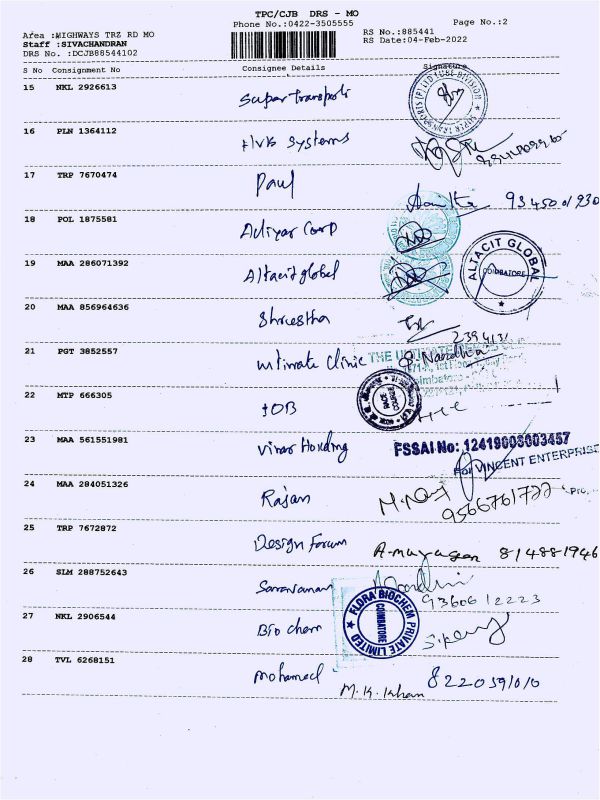 TPC/CJB DRS - MO
Phone No.:0422-3505555
Page No.:2
Area :HIGHWAYS TRZ RD MO
Staff :SIVACHANDRAN
DRS No. :DCJB88544102
RS No.:885441
RS Date:04-Feb-2022
S No Consignment No Consignee Details Signature
15 NKL 2926613 Super Transports
16 PLN 1364112 Systems
17 TRP 7670474 Paul 93450 01930
18 POL 1875581 Adiyar Corp
19 MAA 286071392 Altacit global
ALTACIT GLOBAL
COIMBATORE
20 MAA 856964636 Shreestha
21 PGT 3852557 Ultimate Clinic
THE
22 MTP 666305 IOB
23 MAA 561551981
FSSAI No: 12419003003457
For VINCENT ENTERPRISE
24 MAA 284051326 Rajan
9566761722
25 TRP 7672872 Design Forum A-murugesan 814881946
26 SLM 288752643 Saravanan
93606 12223
27 NKL 2906544 Bio chem
FLORA BIOCHEM PRIVATE LIMITED
COIMBATORE
28 TVL 6268151 Mohamed
M.K. Khan 8220591010